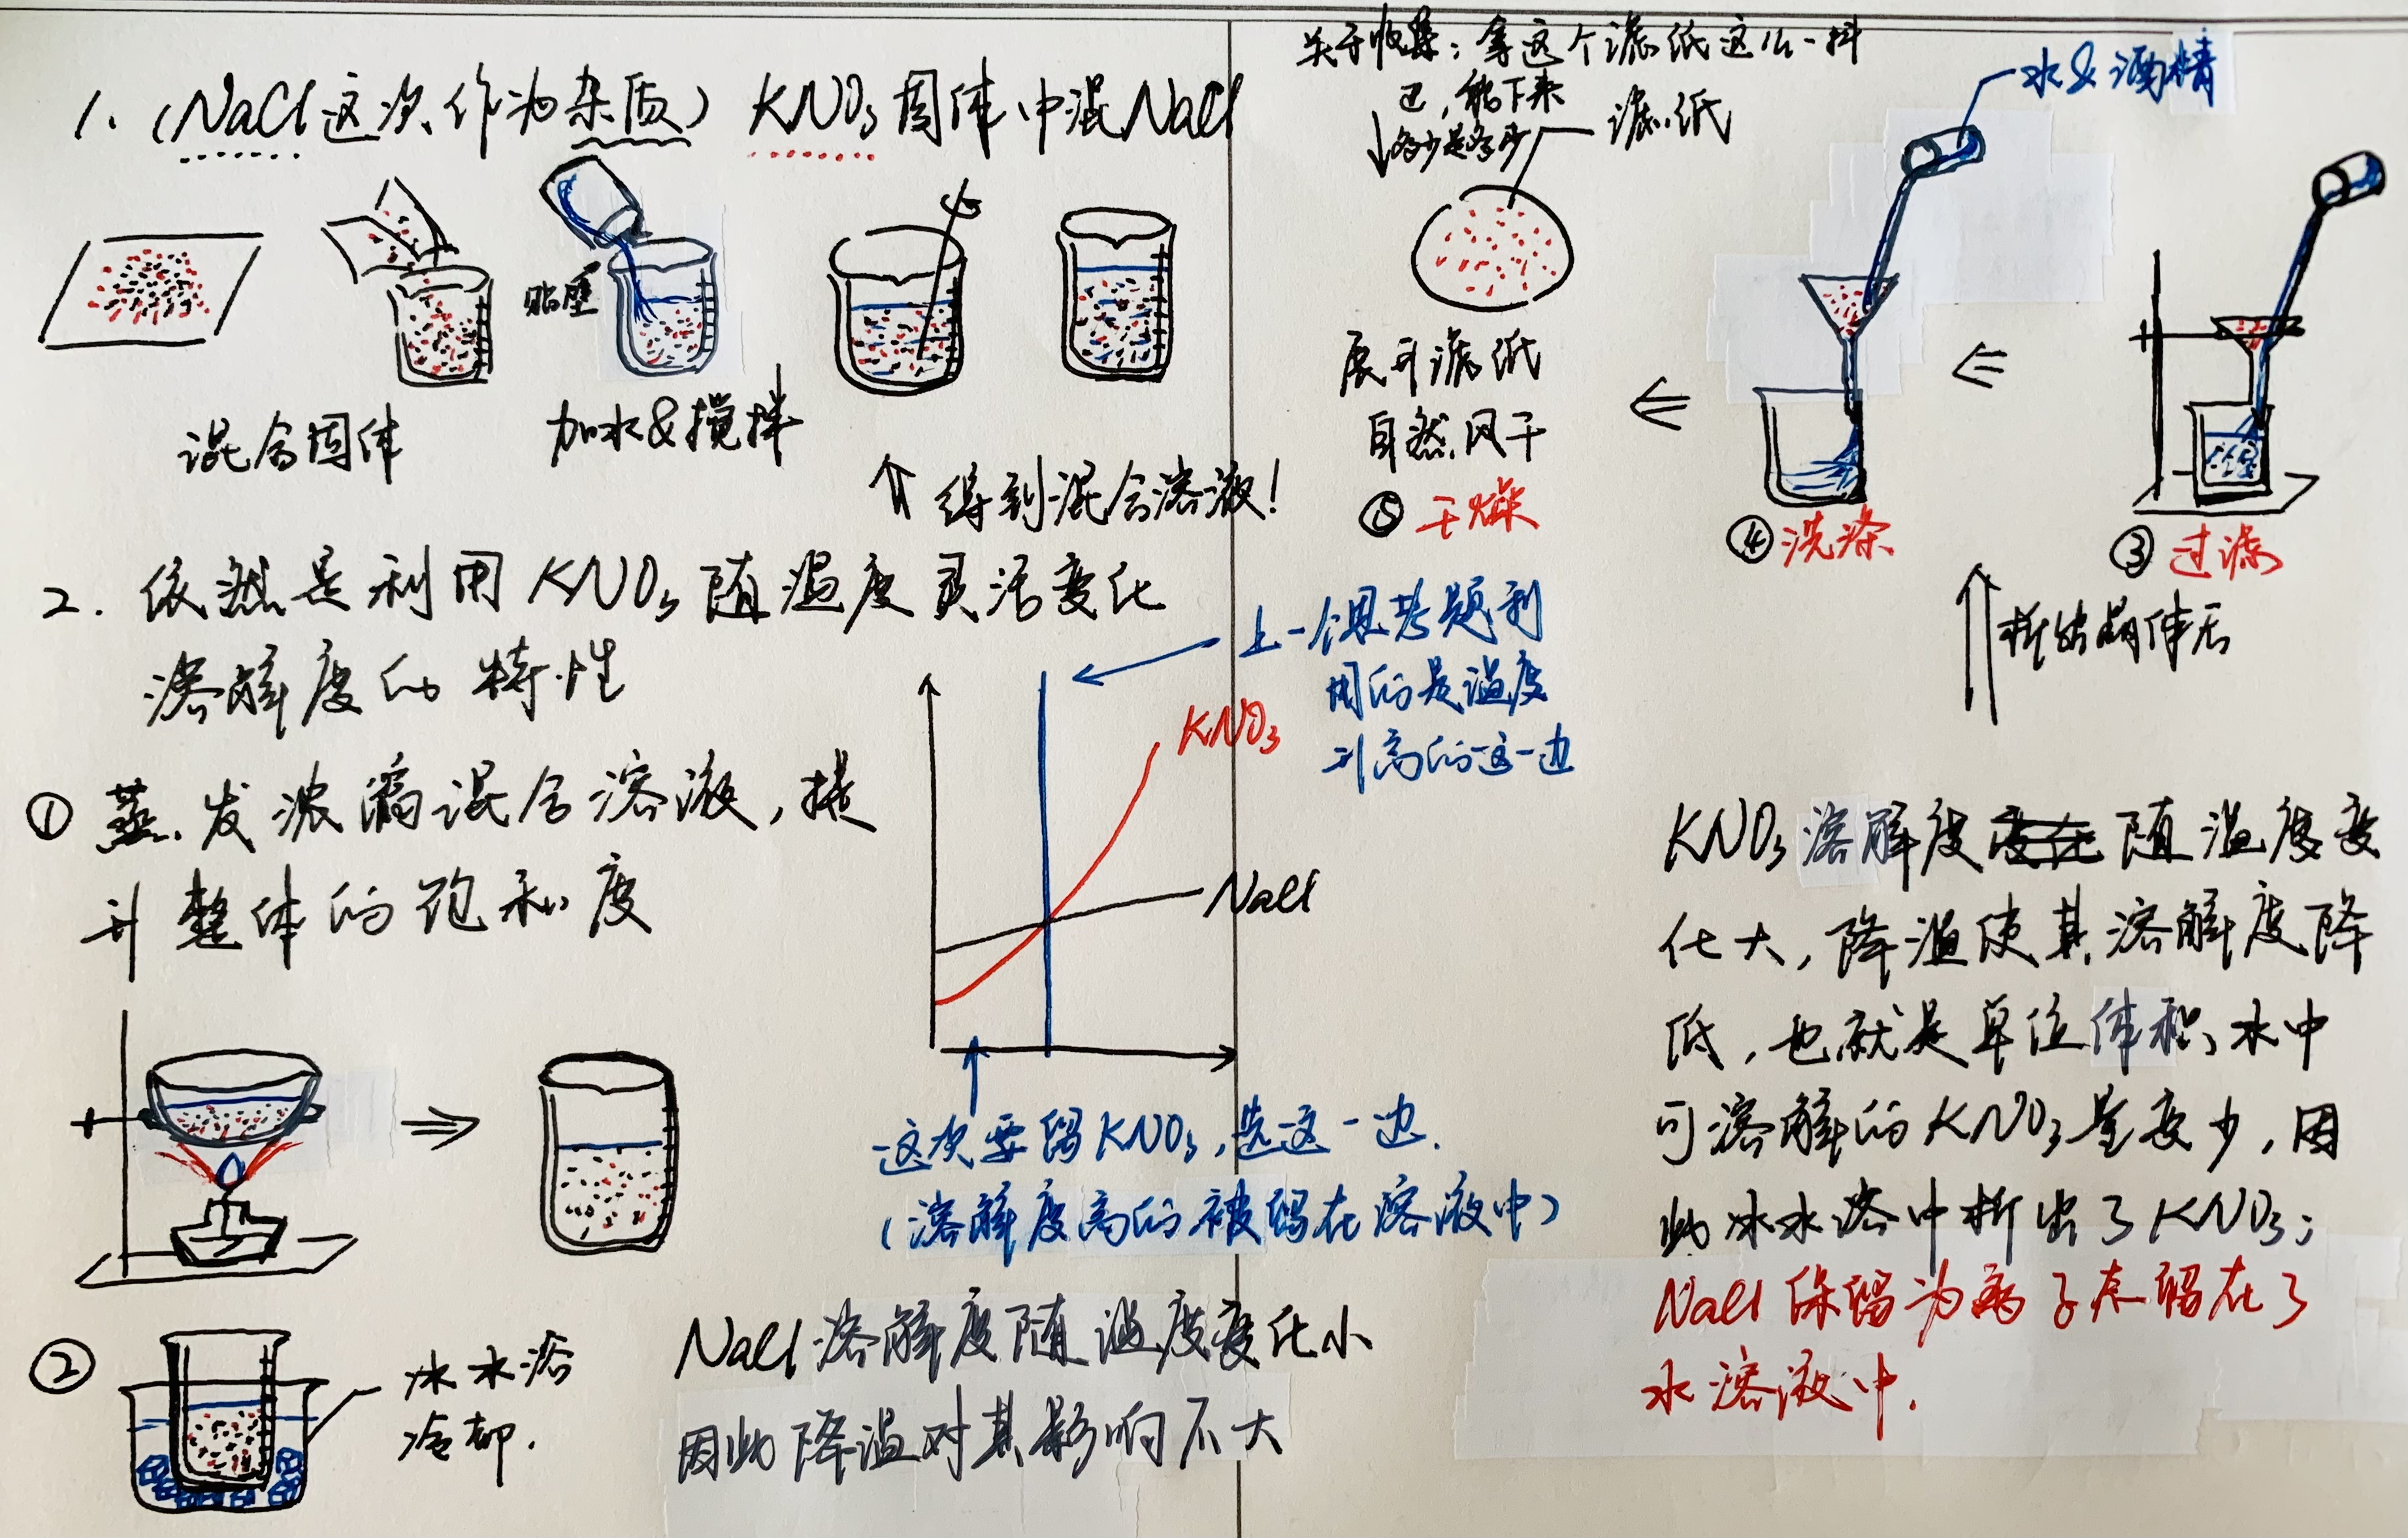 1. (NaCl这次作为杂质) KNO₃固体中混NaCl
贴壁
混合固体
加水&搅拌
⇑ 得到混合溶液!
2. 依然是利用KNO₃随温度灵活变化
溶解度的特性
① 蒸发浓缩混合溶液,提
升整体的饱和度
② 冰水浴
冷却.
KNO₃
NaCl
上一个思考题利
用的是温度
升高的这一边
这次要留KNO₃,选这一边.
(溶解度高的被留在溶液中)
NaCl溶解度随温度变化小
因此降温对其影响不大
关于收集:拿这个滤纸这么一抖
已,能下来
多少是多少
滤纸
展开滤纸
自然风干
⑤ 干燥
水&酒精
④ 洗涤
③ 过滤
析出晶体后
KNO₃溶解度随温度变
化大,降温使其溶解度降
低,也就是单位体积水中
可溶解的KNO₃量变少,因
此冰水浴中析出了KNO₃;
NaCl保留为离子态留在了
水溶液中.